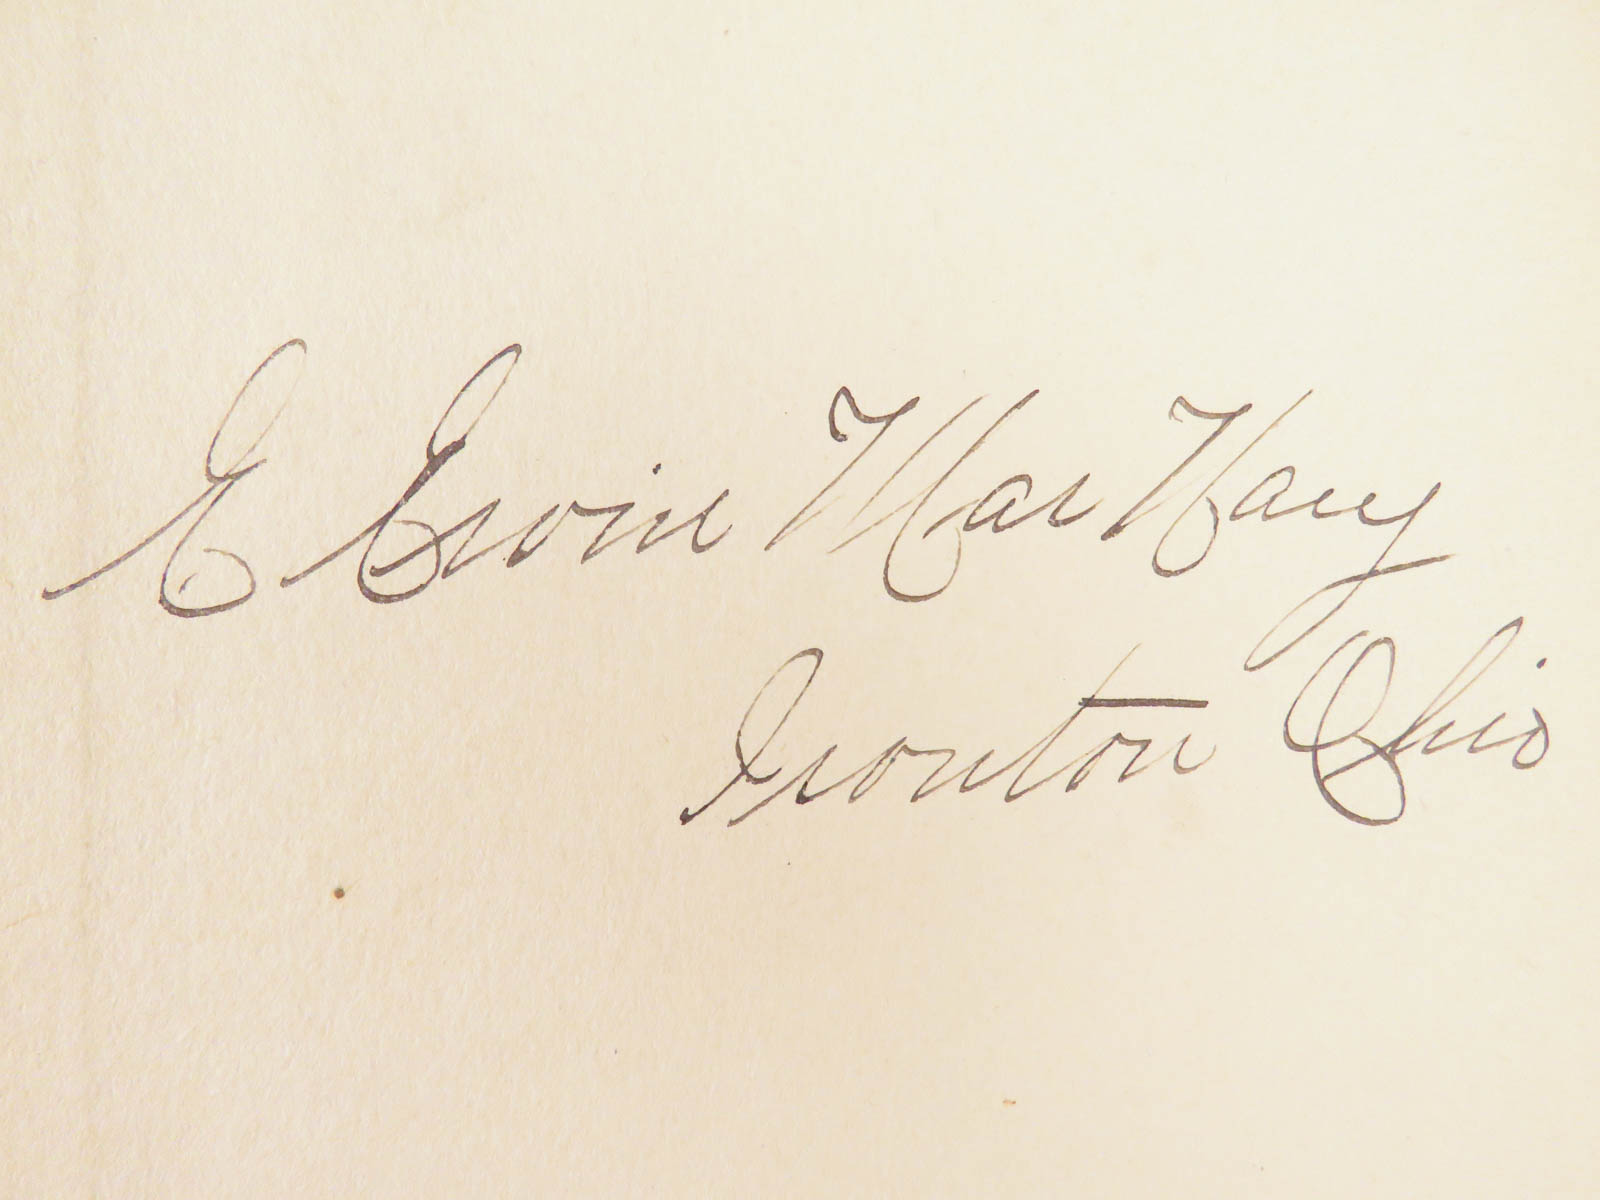 E Ervin Mar Kary
Ironton Ohio